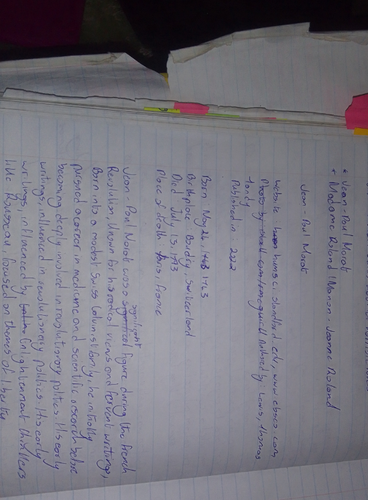 * Jean-Paul Marat
* Madame Roland (Manon-Jeanne Roland
Jean-Paul Marat
website stanford.edu, www.ebsco.com
by Lewis, Thomas
Tandy
Published in 2022
Born May 24 1743
Birthplace Boudry Switzerland
Died July 13, 1793
Place of death Paris, France
Jean-Paul Marat was a significant figure during the French
Revolution, known for his radical views and fervent writings,
Born into a modest Swiss Calvinist family, he initially
pursued a career in medicine and scientific research before
becoming deeply involved in revolutionary politics. His early
writings, influenced in revolutionary politics. His early
writings, influenced by Enlightenment thinkers
like Rousseau, focused on themes of liberty